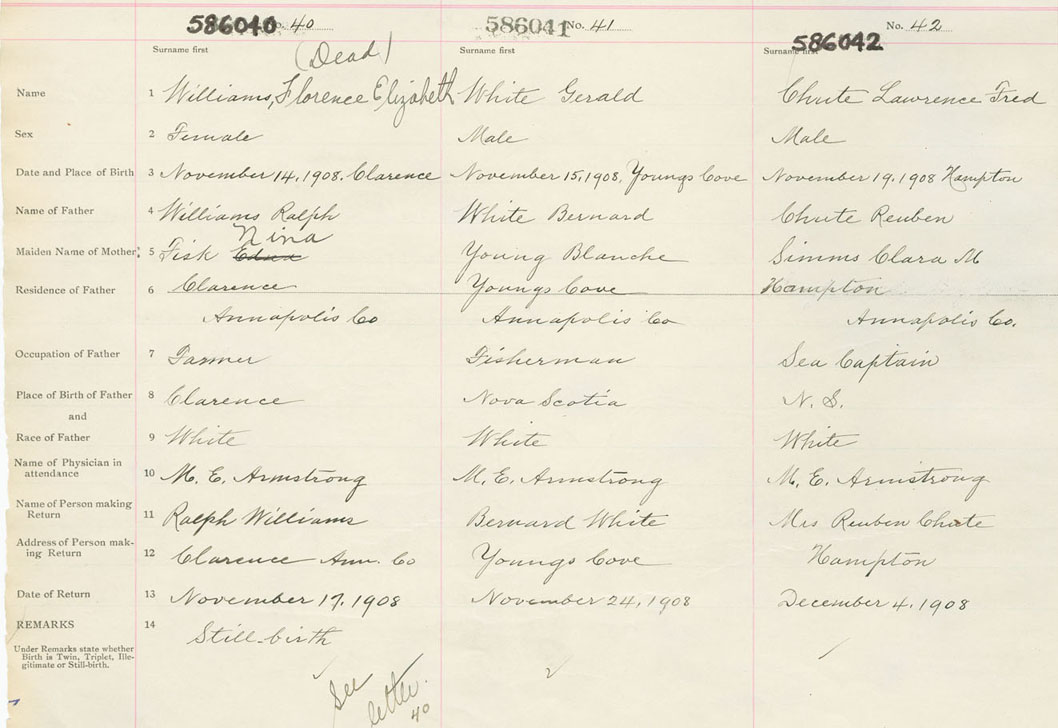 586040 No. 40 586041 No. 41 586042 No. 42
Surname first (Dead) Surname first Surname first
Name 1 Williams, Florence Elizabeth White Gerald Chute Lawrence Fred
Sex 2 Female Male Male
Date and Place of Birth 3 November 14, 1908. Clarence November 15, 1908, Youngs Cove November 19, 1908 Hampton
Name of Father 4 Williams Ralph White Bernard Chute Reuben
Nina
Maiden Name of Mother 5 Fisk Edna Young Blanche Simms Clara M
Residence of Father 6 Clarence Youngs Cove Hampton
Annapolis Co Annapolis Co Annapolis Co.
Occupation of Father 7 Farmer Fisherman Sea Captain
Place of Birth of Father 8 Clarence Nova Scotia N. S.
and
Race of Father 9 White White White
Name of Physician in
attendance 10 M. E. Armstrong M. E. Armstrong M. E. Armstrong
Name of Person making
Return 11 Ralph Williams Bernard White Mrs Reuben Chute
Address of Person mak-
ing Return 12 Clarence Ann. Co Youngs Cove Hampton
Date of Return 13 November 17, 1908 November 24, 1908 December 4, 1908
REMARKS 14 Still-birth
Under Remarks state whether
Birth is Twin, Triplet, Ille-
gitimate or Still-birth.
See
letter.
40